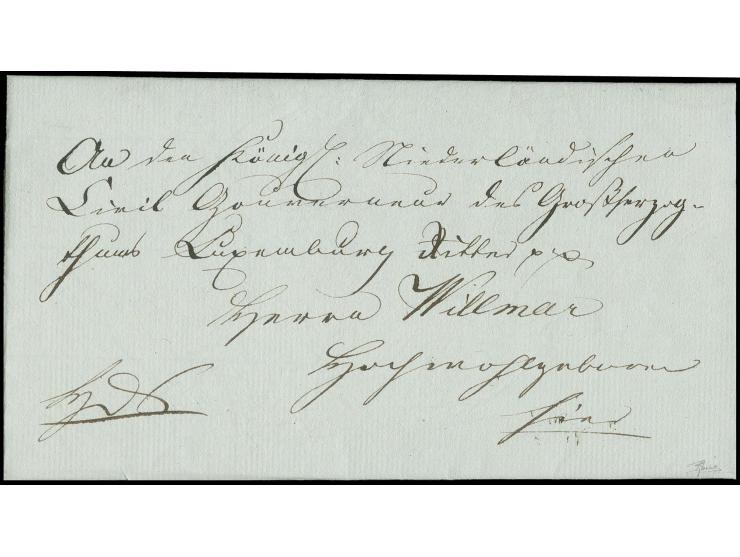 An den Königl: Niederländischen
Civil Gouverneur des Großherzog-
thums Luxemburg Ritter pp
Herrn Willmar
Hochwohlgeboren
HDS
hier